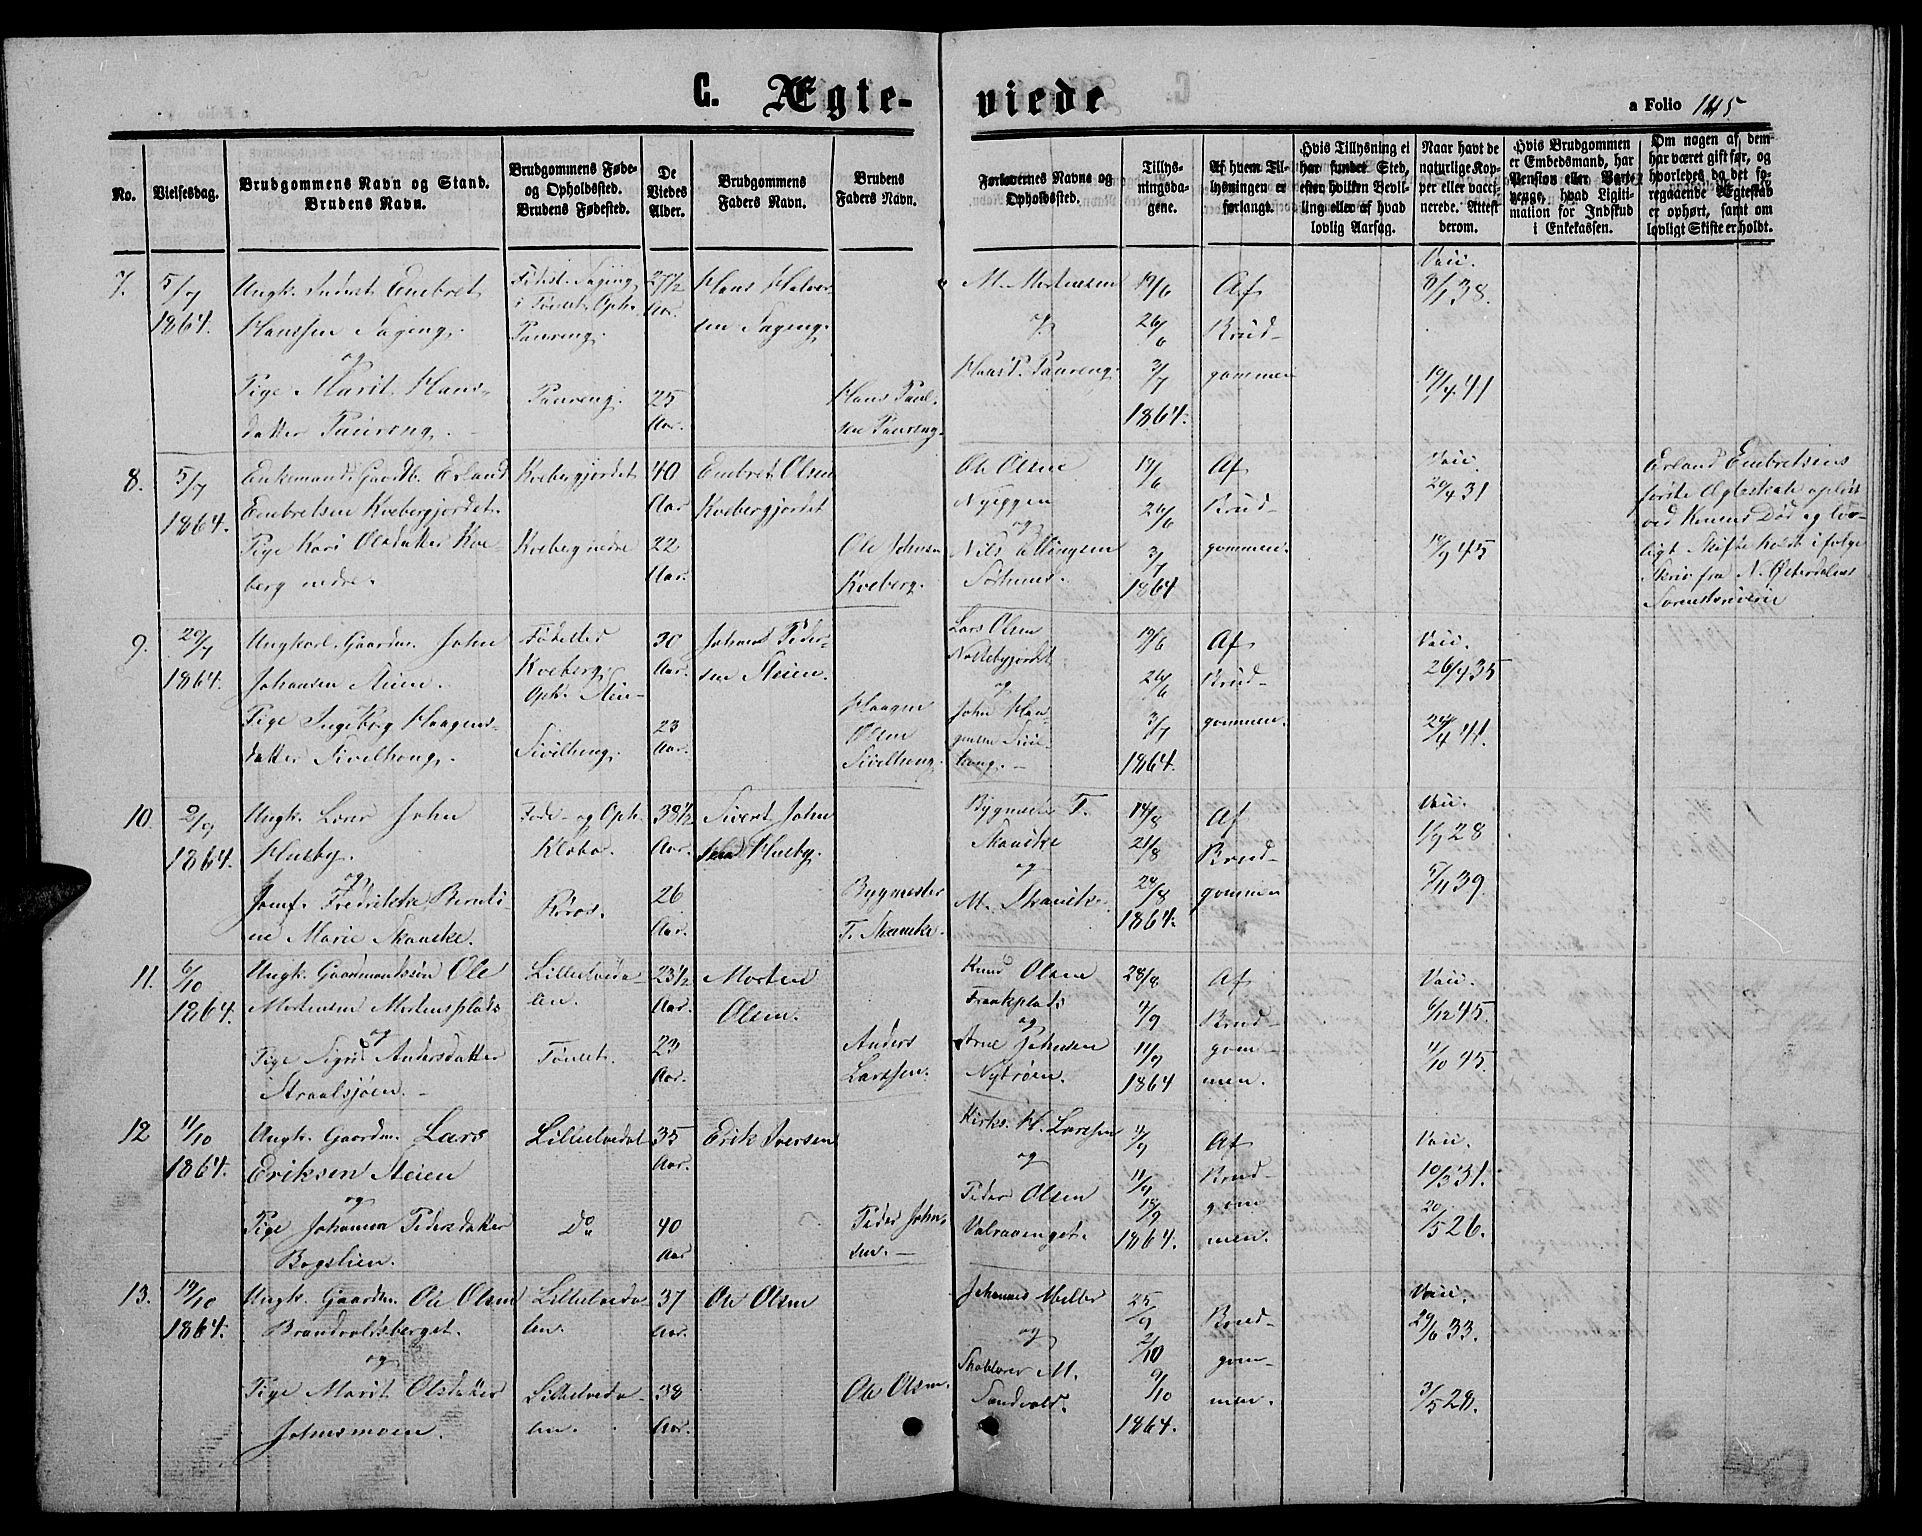 C. Ægte-
viede
a Folio 145
No.
Vielsesdag.
Brudgommens Navn og Stand.
Brudens Navn.
Brudgommens Føde-
og Opholdssted.
Brudens Fødested.
De
Viedes
Alder.
Brudgommens
Faders Navn.
Brudens
Faders Navn.
Forlovernes Navne og
Opholdssted.
Tillys-
ningsda-
gene.
Af hvem Til-
lysningen er
forlangt.
Hvis Tillysning ei
har fundet Sted,
efter hvilken Bevil-
ling eller af hvad
lovlig Aarsag.
Naar havt de
naturlige Kop-
per eller vacci-
nerede. Attest
derom.
Hvis Brudgommen
er Embedsmand, har
Pension eller Var-
penge, hvad Ligiti-
mation for Indskud
i Enkekassen.
Om nogen af dem-
har været gift før, og
hvorledes da det fo-
regaaende Ægteskab
er ophørt, samt om
lovligt Skifte er holdt.
7.
5/7
1864.
Ungk. Embret
Hanssen Sageng.
og
Pige Marit Hans-
datter Paureng.
i Tønset, Oph.
Paureng.
Paureng.
27 1/2
Aar.
25
Aar.
Hans Halvor-
sen Sageng.
Hans Paul-
sen Paureng.
M. Mortensen
og
Hans P. Paureng.
19/6
26/6
3/7
1864.
Af
Brud-
gommen
Vacc.
8/1 38.
19/4 41
8.
5/7
1864.
Enkemand Gaardb. Erland
Embretsen Kvebergjordet.
Pige Kari Olsdatter Kve-
berg nedre.
Kvebergjordet
Kveberg nedre
40
Aar
22
Aar.
Embret Olsen
Kvebergjordet
Ole Johnsen
Kveberg.
Ole Olsen
Nyeggen
og
Nils
19/6
26/6
3/7
1864
Af
Brud-
gommen.
Vacc.
20/4 31
Erland Embretsens
første Ægteskab opløst
ved Konens Død og lov-
ligt Skifte holdt ifølge
Skriv. fra N. Østerdalens
Sorenskriveri
9.
29/7
1864.
Ungkarl Gaardm. John
Johansen Steien.
Pige Ingeborg Haagens-
datter Sivilhaug.
Kveberg,
Oph. Stei-
Sivilhaug.
30
Aar.
23
Aar.
Johans Peder-
sen Steien.
Haagen
Olsen
Sivilhaug.
Lars Olsen
og
John Haa-
gensen Sivil-
haug.
19/6
26/6
3/7
1864.
Af
Brud-
gommen.
Vacc.
26/4 35
24/4 41.
10.
2/9
1864.
Ungk. John
Husby.
og
Jomf. Fredrikke Bernti-
ne Marie Skancke.
Føde- og Oph.
Klæbo.
Røros.
38 1/2
Aar.
26
Aar.
Sivert John
sen Husby.
Bygmester
T. Skancke.
Bygmester T.
Skancke
og
M. Skancke.
14/8
21/8
28/8
1864.
Af
Brud-
gommen
Vacc.
1/9 28
5/11 39.
11.
6/10
1864.
Ungk. Gaardmandssøn Ole
Mortensen Mortensplads
og
Pige Sigrid Andersdatter
Straalsjøen.
Lilleelveda-
len.
Tønset.
23 1/2
Aar.
23
Aar.
Morten
Olsen.
Anders
Larssen.
Knud Olsen
Frankplads
og
Arne Johnsen
Nytrøen.
28/8
4/9
11/9
1864
Af
Brud-
gom-
men.
Vacc.
6/12 45.
4/10 45.
12
11/10
1864.
Ungk. Gaardm. Lars
Eriksen Steien
og
Pige Johanna Pedersdatter
Bogslien.
Lilleelvedal
Do
35
Aar.
40
Aar
Erik Iversen
Peder John-
sen.
Kirkes. H. Larssen
og
Peder Olsen
4/9
11/9
18/9
1864.
Af
Brud-
gom-
men.
Vacc.
10/3 31.
20/5 26.
13.
19/10
1864.
Ungk. Gaardm. Ole Olsen
Brandvoldsberget.
og
Pige Marit Olsdatter
Johnsmoen.
Lilleelveda-
len.
Lilleelveda-
len.
37
Aar.
38
Aar.
Ole Olsen
Ole Olsen.
Johannes Møller
og
Skolelærer M.
Sandvold.
25/9
2/10
9/10
1864.
Brud-
gom-
men.
Vacc.
29/6 33.
3/5 28.